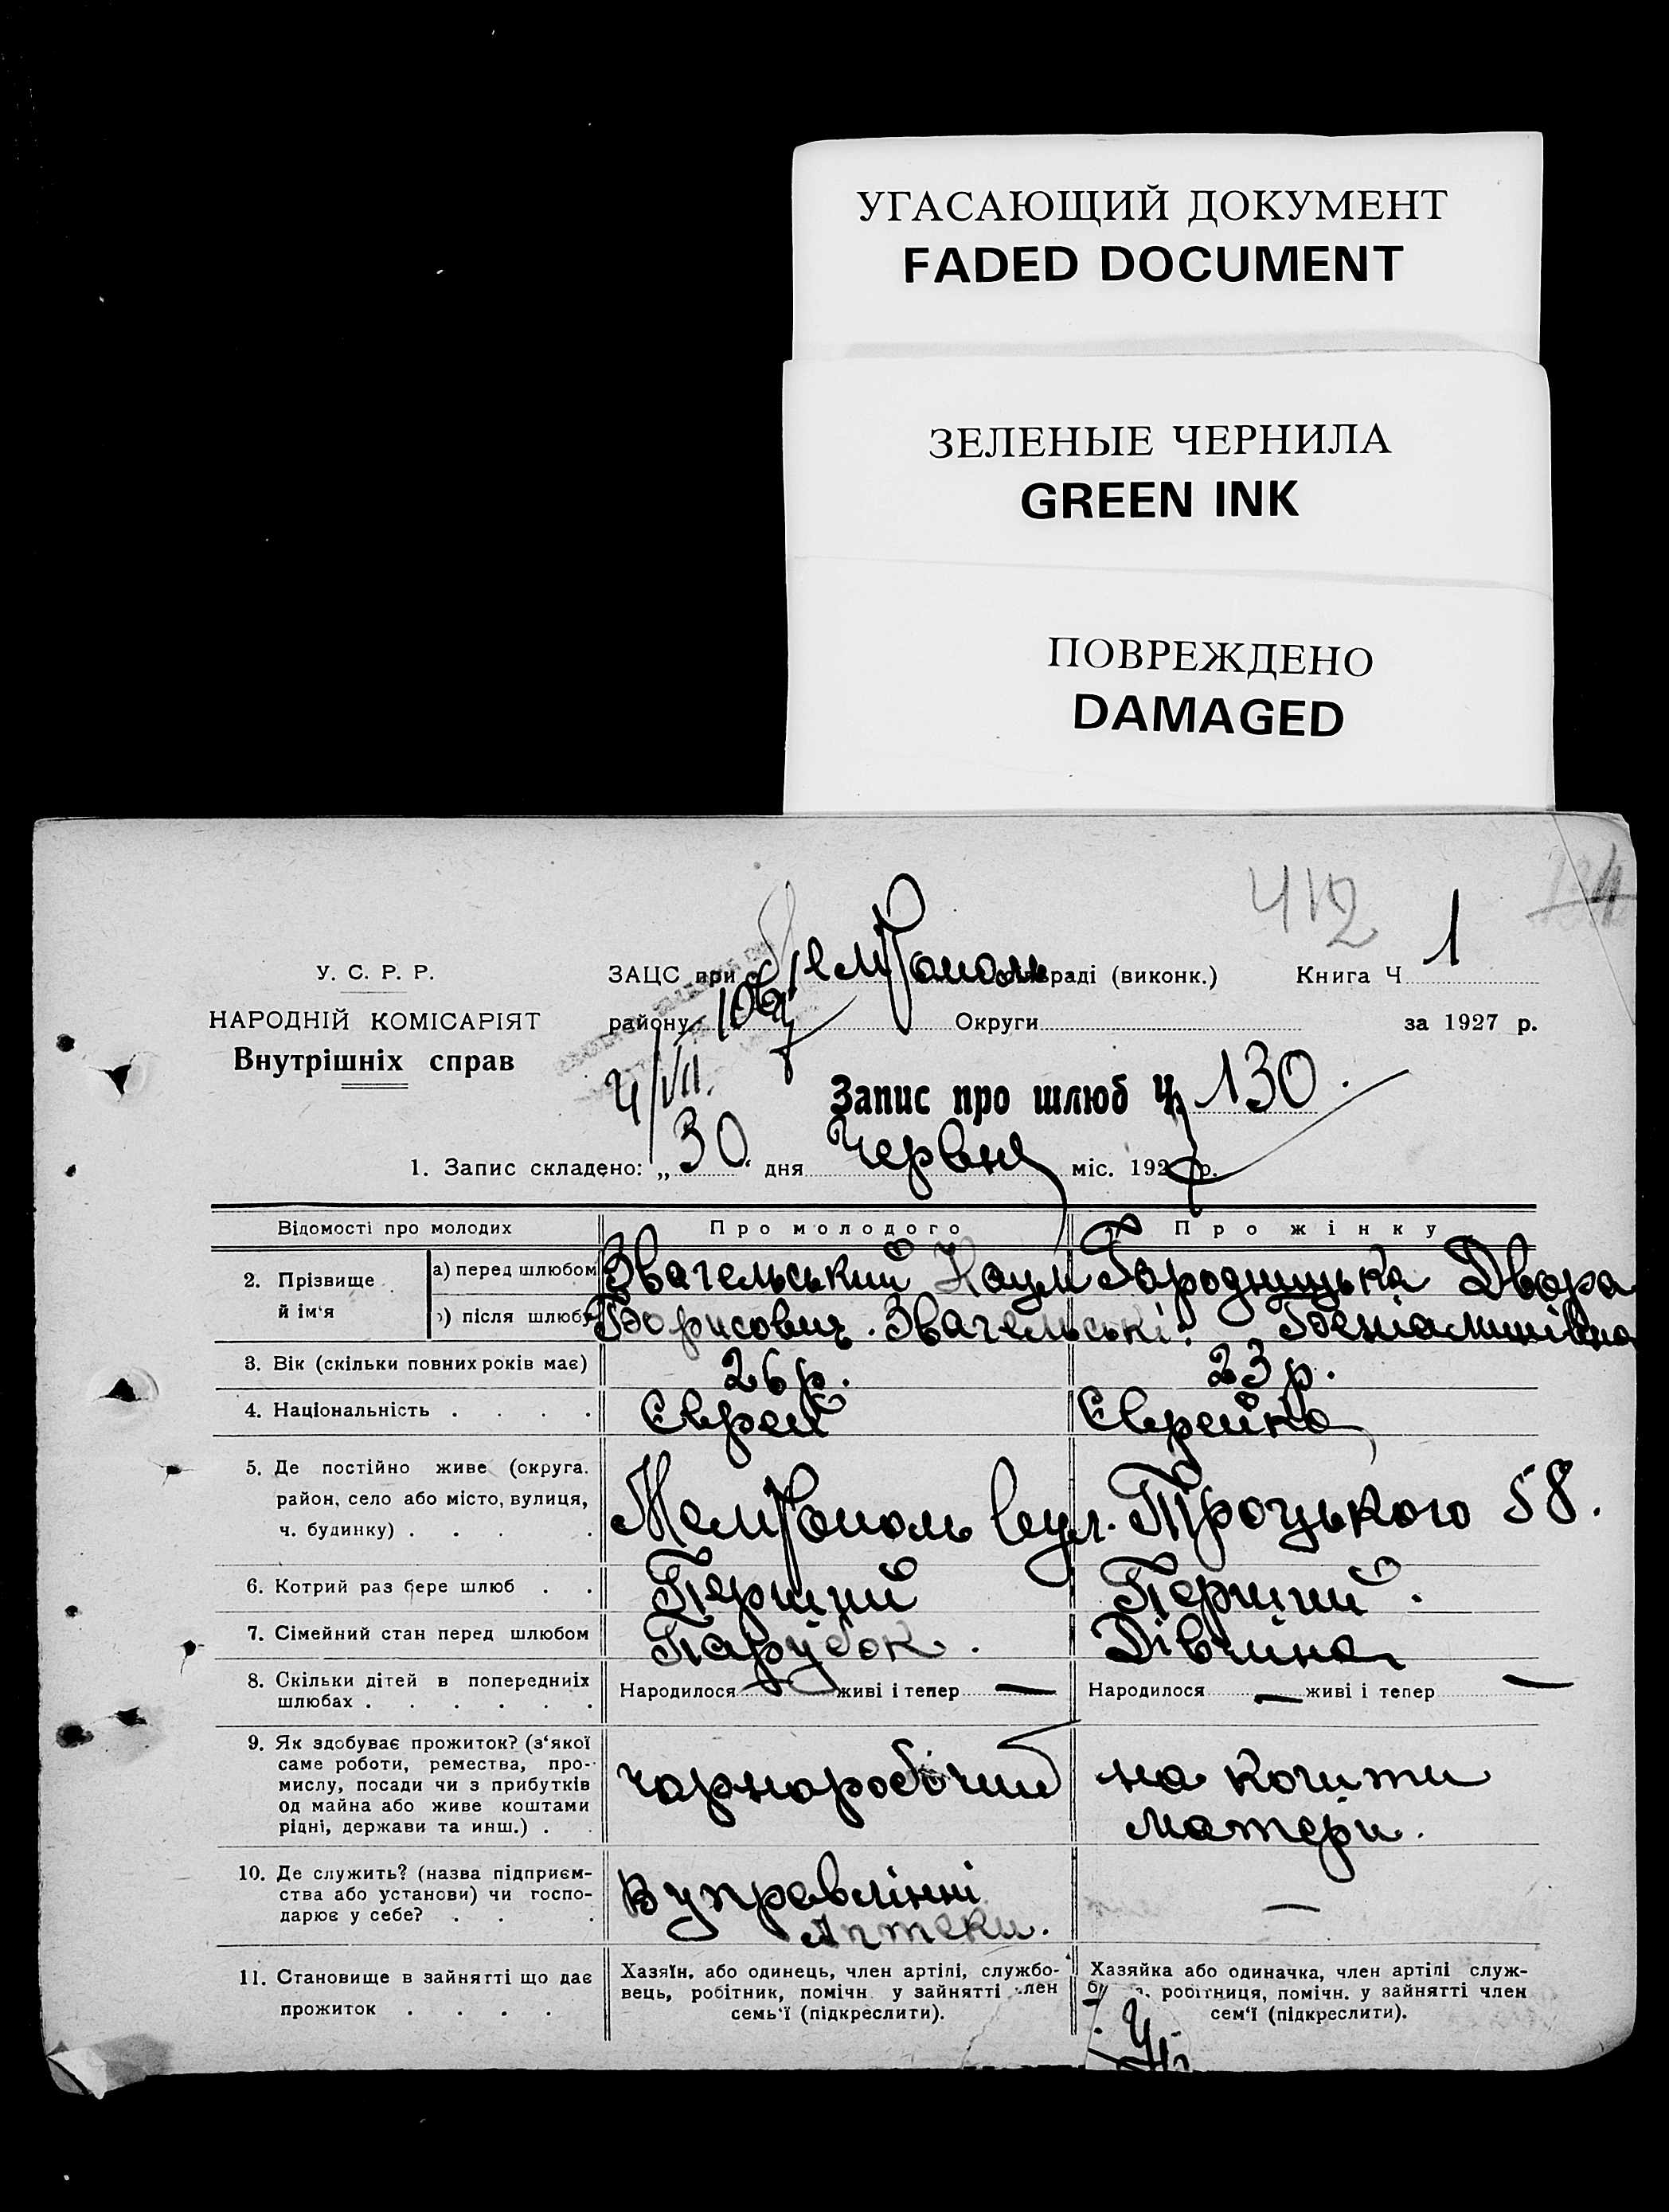 УГАСАЮЩИЙ ДОКУМЕНТ
FADED DOCUMENT
ЗЕЛЕНЫЕ ЧЕРНИЛА
GREEN INK
ПОВРЕЖДЕНО
DAMAGED
412
У. С. Р. Р.
НАРОДНІЙ КОМІСАРІЯТ
Внутрішніх справ
ЗАЦС при раді (виконк.) Книга Ч 1
району Округи за 1927 р.
4/VII.
Запис про шлюб Ч 130.
1. Запис складено: „30" дня Червня міс. 1927 р.
Відомості про молодих Про молодого Про жінку
2. Прізвище й ім'я
а) перед шлюбом Звагельський Наум Городницька Двора
б) після шлюбу Борисович. Звагельські. Беніаминівна
3. Вік (скільки повних років має) 26 р. 23 р.
4. Національність . . . . Єврей Єврейка
5. Де постійно живе (округа. район, село або місто, вулиця, ч. будинку) . . . . Мелітополь вул. Троцького 58.
6. Котрий раз бере шлюб . . Перший Перший.
7. Сімейний стан перед шлюбом Парубок. Дівчина
8. Скільки дітей в попередніх шлюбах . . . . . . Народилося — живі і тепер — Народилося — живі і тепер —
9. Як здобуває прожиток? (з'якої саме роботи, ремества, промислу, посади чи з прибутків од майна або живе коштами рідні, держави та инш.) .
чорноробочий
на кошти
матери.
10. Де служить? (назва підприємства або установи) чи господарює у себе? . . .
В управлінні
Аптеки.
—
11. Становище в зайнятті що дає прожиток . . . .
Хазяїн, або одинець, член артілі, службовець, робітник, помічн. у зайнятті член семь'ї (підкреслити).
Хазяйка або одиначка, член артілі служ-
робітниця, помічн. у зайнятті член
сем'ї (підкреслити).